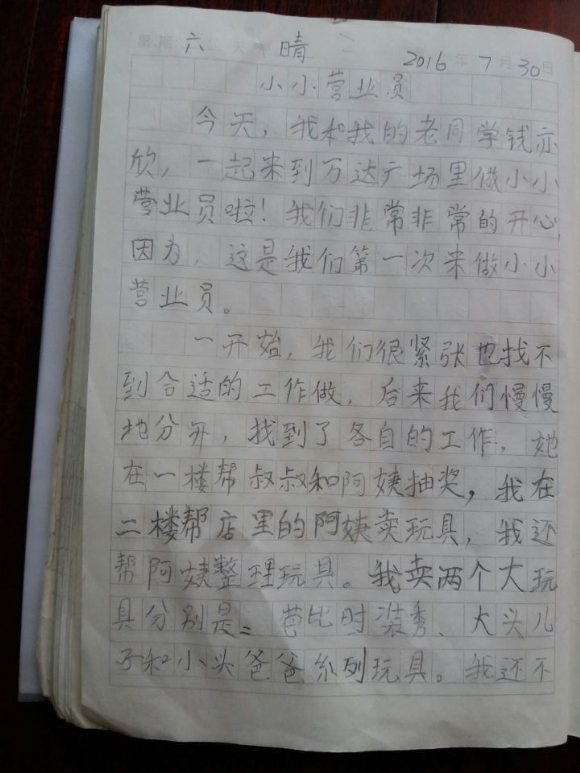 星期 六 天气 晴 2016年7月30日
小小营业员
今天，我和我的老同学钱亦
欣，一起来到万达广场里做小小
营业员啦！我们非常非常的开心，
因为，这是我们第一次来做小小
营业员。
一开始，我们很紧张也找不
到合适的工作做，后来我们慢慢
地分开，找到了各自的工作，她
在一楼帮叔叔和阿姨抽奖，我在
二楼帮店里的阿姨卖玩具，我还
帮阿姨整理玩具。我卖两个大玩
具分别是：芭比时装秀、大头儿
子和小头爸爸系列玩具。我还不